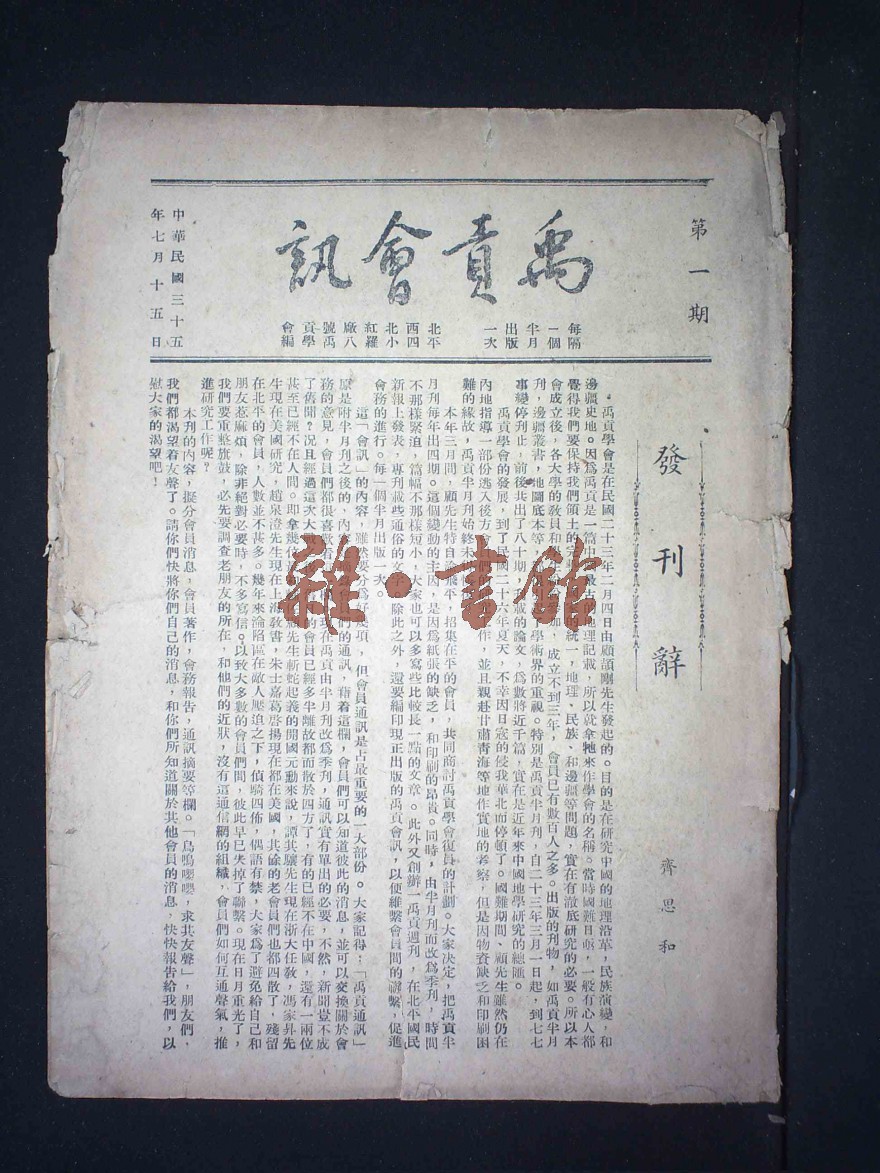 第一期
禹貢會訊
每隔
一個
半月
出版
一次
北平
西四
北小
紅羅
廠八
號禹
貢學
會編
中華民國三十五
年七月十五日
發刊辭
齊思和
禹貢學會是在民國二十三年二月四日由顧頡剛先生發起的。目的是在研究中國的地理沿革，民族演變，和
邊疆史地。因為禹貢是一篇中國最古的地理記載，所以就拿牠來作學會的名稱。當時國難日亟，一般有心人都
覺得我們要保持我們領土的完整的統一，地理、民族、和邊疆等問題，實在有澈底研究的必要。所以本
會成立後，各大學的教員和加，成立不到三年，會員已有數百人之多。出版的刊物，如禹貢半月
刊，邊疆叢書，地圖底本等學術界的重視。特別是禹貢半月刊，自二十三年三月一日起，到七七
事變停刊止，前後共出了八十期，載的論文，為數將近千篇，實在是近年來中國地學研究的總匯。
禹貢學會的發展，到了民國二十六年夏天，不幸因日寇的侵我華北而停頓了。國難期間、顧先生雖然仍在
內地指導一部份逃入後方們的作，並且親赴甘肅青海等地作實地的考察，但是因物資缺乏和印刷困
難的緣故，禹貢半月刊始終未
本年三月間，顧先生特自飛平，招集在平的會員，共同商討禹貢學會復員的計劃。大家決定，把禹貢半
月刊每年出四期。這個變動的主因，是因為紙張的缺乏，和印刷的昂貴。同時，由半月刊而改為季刊，時間
不那樣緊迫，篇幅不那樣短小，大家也可以多寫些比較長一點的文章。此外又創辦一禹貢週刊，在北平國民
新報上發表，專刊載些通俗的文字。除此之外，還要編印現正出版的禹貢會訊，以便維繫會員間的聯繫，促進
會務的進行。每一個半月出版一次。
這「會訊」的內容，雖然要分為好幾項，但會員通訊是占最重要的一大部份。大家記得：「禹貢通訊」
原是附半月刊之後的，內容們的通訊，藉着這欄，會員們可以知道彼此的消息，並可以交換關於會
務的意見，會員們都很喜歡看現在禹貢由半月刊改為季刊，通訊實有單出的必要，不然，新聞豈不成
了舊聞？况且經過這次大戰的會員已經多半離故都而散於四方了，有的已經不在中國，還有一兩位
甚至已經不在人間。即拿幾位顧先生斬蛇起義的開國元勳來說，譚其驤先生現在浙大任教，馮家昇先
生現在美國研究，趙泉澄先生現在上海教書，朱士嘉葛啓揚現在都在美國，其餘的老會員們也都四散了，殘留
在北平的會員，人數並不甚多。幾年來淪陷區在敵人壓迫之下，偵騎四佈，偶語有禁，大家為了避免給自己和
朋友惹麻煩，除非絕對必要時，不多寫信。以致大多數的會員們間，彼此早已失掉了聯繫。現在日月重光了，
我們要重整旗鼓，必先要調查老朋友的所在，和他們的近狀，沒有這通信網的組織，會員們如何互通聲氣，推
進研究工作呢？
本刊的內容，擬分會員消息，會員著作，會務報告，通訊摘要等欄。「鳥鳴嚶嚶，求其友聲」，朋友們，
我們都渴望着友聲了。請你們快將你們自己的消息，和你們所知道關於其他會員的消息，快快報告給我們，以
慰大家的渴望吧！
雜·書館